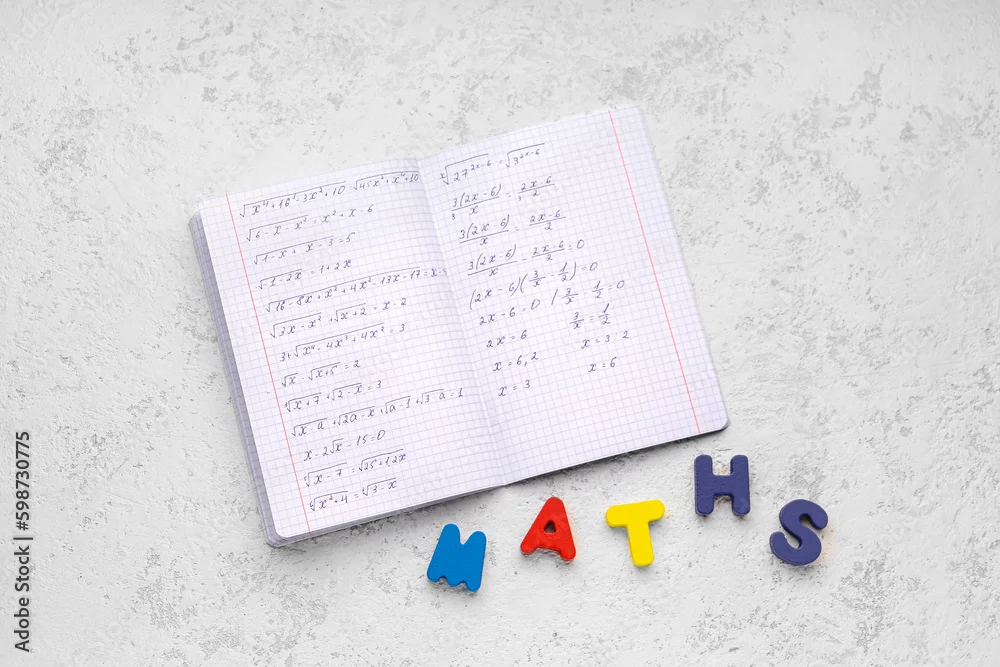 √x⁴+16³-3x²+10 = √45x²+x⁴+10
√6-x-x² = x²+x-6
√1-x+x-3=5
√1-2x = 1+2x
√16-8x+x²+4x²-13x-17=x-
√3x-x²+√x+2=x-2
3+√x⁴-4x³+4x²=3
√x-√x+5=2
√x+7+√2-x=3
√x-a+√2a-x+√a-1+√3-a=1
x-2√x-15=0
√x-7=√25+12x
√x²+4=√3-x
ˣ√27²ˣ⁻⁶=√3²ˣ⁻⁶
3(2x-6)/x=2x-6/2
3(2x-6)/x=2x-6/2
3(2x-6)/x-2x-6/2=0
(2x-6)(3/x-1/2)=0
2x-6=0 / 3/x-1/2=0
2x=6 3/x=1/2
x=6,2 x=3·2
x=3 x=6
MATHS
Adobe Stock | #598730775